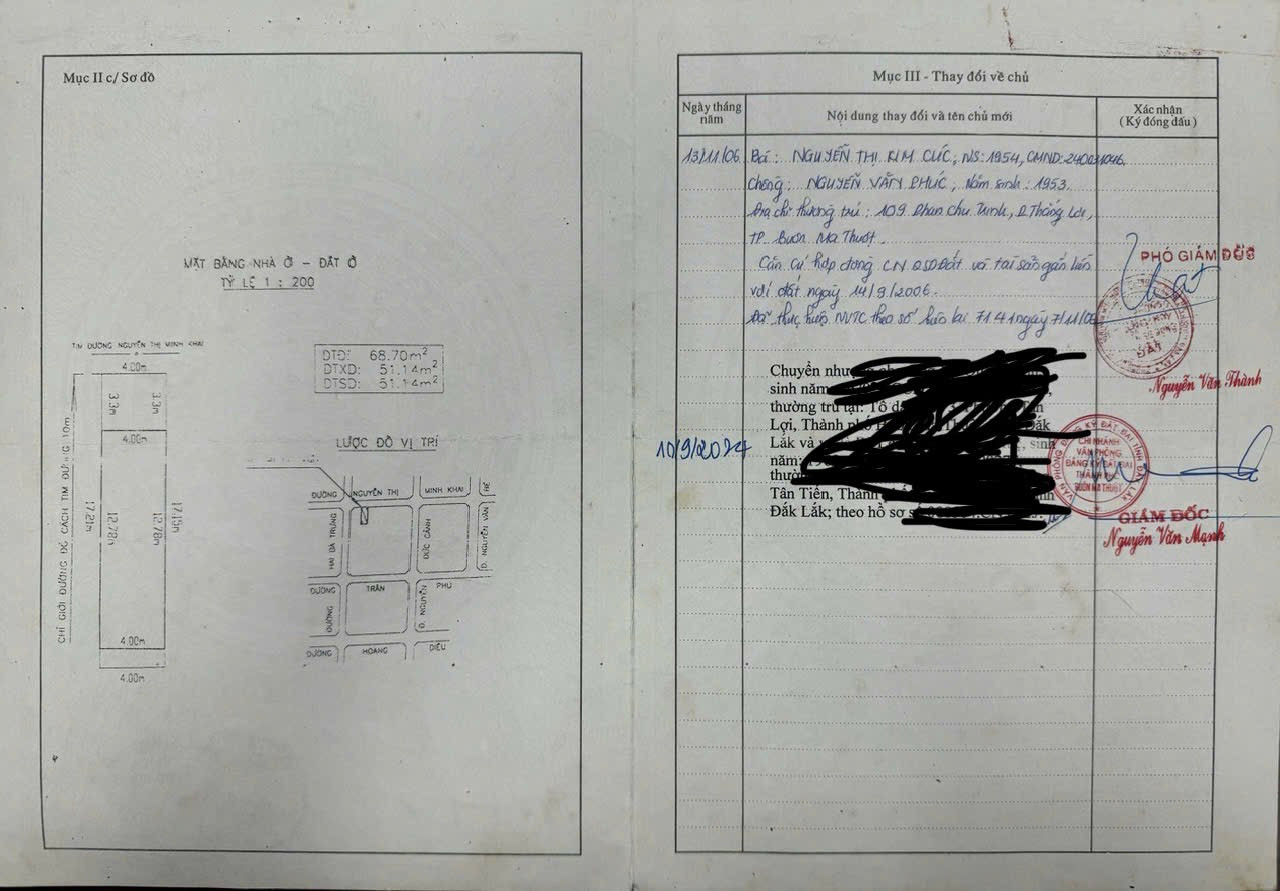 Mục II c./ Sơ đồ
MẶT BẰNG NHÀ Ở - ĐẤT Ở
TỶ LỆ 1 : 200
TIM ĐƯỜNG NGUYỄN THỊ MINH KHAI
4.00m
3.3m
3.3m
4.00m
CHỈ GIỚI ĐƯỜNG ĐỎ CÁCH TIM ĐƯỜNG 10m
17.21m
12.78m
12.78m
17.15m
4.00m
4.00m
DTĐ: 68.70m²
DTXD: 51.14m²
DTSD: 51.14m²
LƯỢC ĐỒ VỊ TRÍ
ĐƯỜNG NGUYỄN THỊ MINH KHAI
HAI BÀ TRƯNG
ĐỨC CẢNH
Đ. NGUYỄN VĂN
ĐƯỜNG TRẦN PHÚ
ĐƯỜNG
Đ. NGUYỄN
ĐƯỜNG HOÀNG DIỆU
Mục III - Thay đổi về chủ
Ngày tháng năm
Nội dung thay đổi và tên chủ mới
Xác nhận
( Ký đóng dấu )
13/11/06
Bà : NGUYỄN THỊ KIM CÚC, NS: 1954, CMND: 240031046.
Chồng : NGUYỄN VĂN PHÚC, Năm sinh : 1953.
Địa chỉ thường trú : 109 Phan Chu Trinh, P. Thắng Lợi,
TP. Buôn Ma Thuột.
Căn cứ hợp đồng CN QSDĐất và tài sản gắn liền
với đất ngày 14/9/2006.
Đã thực hiện NVTC theo số biên lai 7141 ngày 7/11/06
PHÓ GIÁM ĐỐC
Nguyễn Văn Thành
10/9/2024
Chuyển
sinh năm
thường trú tại: Tổ
Lợi, Thành phố Đắk
Lắk và sinh
năm:
Tân Tiến, Thành
Đắk Lắk; theo hồ sơ
VĂN PHÒNG ĐĂNG KÝ ĐẤT ĐAI TỈNH ĐẮK LẮK
CHI NHÁNH
VĂN PHÒNG
ĐĂNG KÝ ĐẤT ĐAI
THÀNH PHỐ
BUÔN MA THUỘT
GIÁM ĐỐC
Nguyễn Văn Mạnh